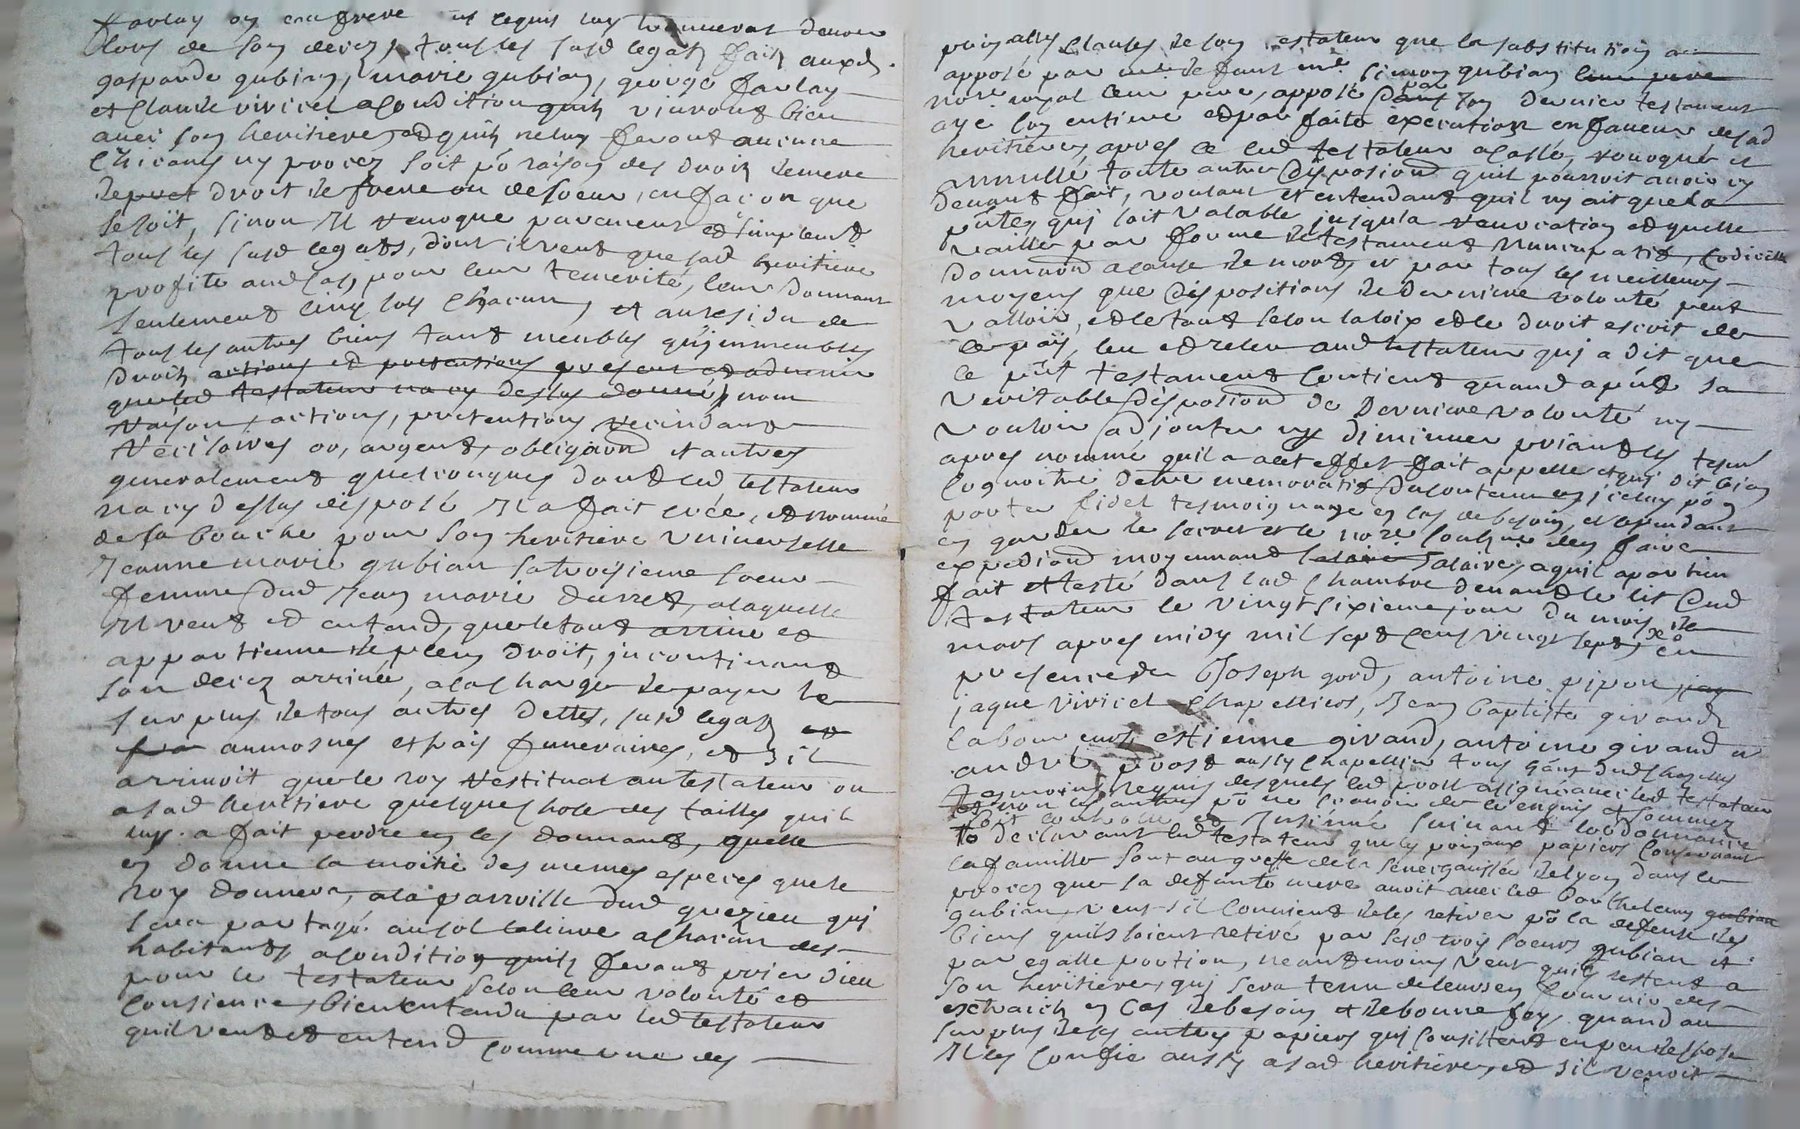 lors de son decez, tous les susd legatz faitz auxd.
gasparde gubian, marie gubian, george farlay
et Claude vivicel a condition quilz vivront bien
avec son heritiere, et quilz ne luy feront aucune
Chicane ny procez soit po raison des droitz de mere
depuet droit de frere ou de soeur, en façon que
se soit, sinon Il revoque purement et simplemt
tous les susd legatz, dont il veut que sad heritiere
profite aud cas, pour leur temerité, leur donnant
seulement cinq sols chacun, et au residu de
tous les autres biens tant meubles qu'immeubles
droitz actions et pretentions present et advenir
que led testateur na cy dessus donné, nom
raison, actions, pretentions rescindant
rescisoires or, argent, obligaõn et autres
generalement quelconques dont led testateur
na cy dessus disposé Il a fait créé, et nommé
de sa bouche pour son heritiere universelle
Jeanne marie gubian sa troisieme soeur
femme dud Jean marie durret, a laquelle
Il veut et entend, que le tout arrive et
appartienne de plein droit, incontinant
son decez arrivé, a la charge de payer le
surplus de tous autres dettes, susd legatz et
fra aumosnes et frais funeraires, et sil
arrivoit que le roy restituat au testateur ou
a sad heritiere quelque chose des tailles quil
luy a fait perdre en les donnant, quelle
en donne la moitié des mesmes especes que le
roy donnera, a la parroisse dud grezieu qui
sera partagé au sol la livre a chacun des
habitants a condition quilz feront prier Dieu
pour le testateur selon leur volonté et
consience, bien entendu par led testateur
quil veut et entend comme une des
principalles clauses de son testateur que la substitution a
apposé par led defunt me simon gubian leur pere
nore royal leur pere, apposé dans son dernier testament
aye son entiere et parfaite execution en faveur de sad
heritiere, apres ce led testateur a cassé, revoqué et
annullé toute autre disposion quil pourroit avoir cy
devant fait, voulant et entendant quil ny ait que la
pnte, qui soit valable jusqu'a revocation et quelle
vaille par forme de testament nuncupatif, codicille
donnaon a cause de mort, et par tous les meilleurs
moyens que dispositions de derniere volonté peut
valloir, et le tout selon la loix et le droit escrit de
ce pais, leu et releu aud testateur qui a dit que
ce pnt testament contient quand a pnt sa
veritable disposion de derniere volonté ny
vouloir adjouter ny diminuer priant les tesm
apres nommé quil a a cet effet fait appeller et qui dit bien
cognoitre detre memoratif du contenu en jceluy po en
porter fidel tesmoignage en cas de besoin, et cependant
en garder le secret et le nore soubzné den faire
expedion moyennant salaire salaire, a quil apartien
fait et testé dans lad Chambre devant le lit dud
testateur le vingt sixieme jour du mois de
mars apres midy mil sept cens vingt sept, en
presence de Joseph gord, antoine pipon jay
jaque vivicel Chapelliers, Jean baptiste girand
laboureur, estienne girand, antoine girand et
andré prost aussy chapellier tous
tesmoins requis desquels led prost a signé avec led testateur
et non les autres po ne scavoir de ce enquis et sommez
soit controllé et Insinué suivant lordonnance
declarant led testateur que les principaux papiers concernant
la famille sont au greffe de la senechaussée de lyon dans le
procez que sa defunte mere avoit avec led Barthelemy gubian
gubian, veut sil convient de les retirer po la defense des
biens quils soient retiré par sesd trois soeurs gubian et
par egalle portion, neantmoins veut quils restent a
son heritiere, qui sera tenu de leurs en fournir des
extraits en cas de besoin et de bonne foy, quand au
surplus de ses autres papiers qui consistent en peu de chose
Il les confie aussy a sad heritiere, et sil venoit